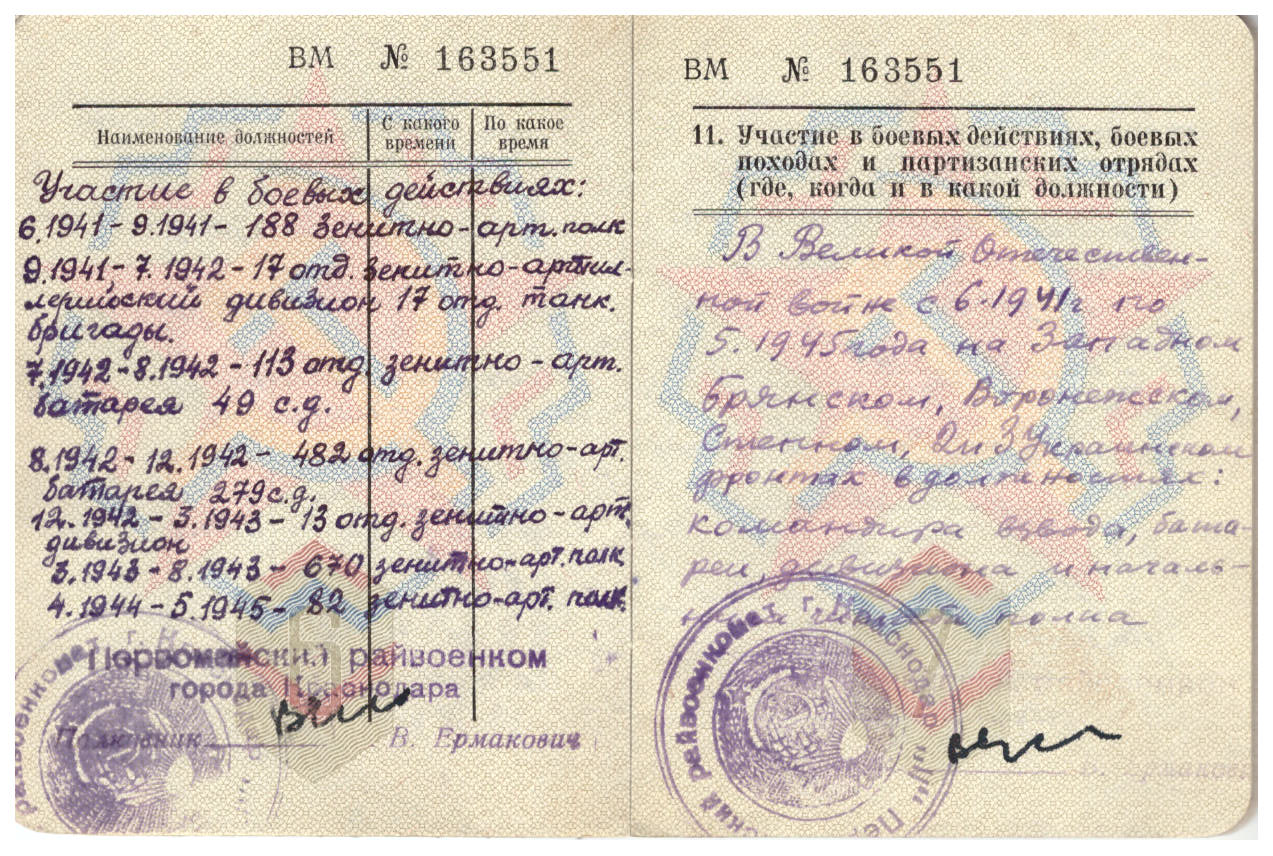 ВМ № 163551
Наименование должностей
С какого времени
По какое время
Участие в боевых действиях:
6.1941 - 9.1941 - 188 Зенитно-арт. полк
9.1941 - 7.1942 - 17 отд. зенитно-артил-
лерийский дивизион 17 отд. танк.
бригады.
7.1942 - 8.1942 - 113 отд. зенитно-арт.
батарея 49 с.д.
8.1942 - 12.1942 - 482 отд. зенитно-арт.
батарея 279 с.д.
12.1942 - 3.1943 - 13 отд. зенитно-арт.
дивизион
3.1943 - 8.1943 - 670 зенитно-арт. полк
4.1944 - 5.1945 - 82 зенитно-арт. полк.
Первомайский райвоенком
города Краснодара
Полковник В. Ермакович
ВМ № 163551
11. Участие в боевых действиях, боевых
походах и партизанских отрядах
(где, когда и в какой должности)
В Великой Отечествен-
ной войне с 6.1941г по
5.1945 года на Западном
Брянском, Воронежском,
Степном, 2 и 3 Украинском
фронтах в должностях:
командира взвода, бата-
реи, дивизиона и началь-
ника штаба полка
райвоенкомат г. Краснодара